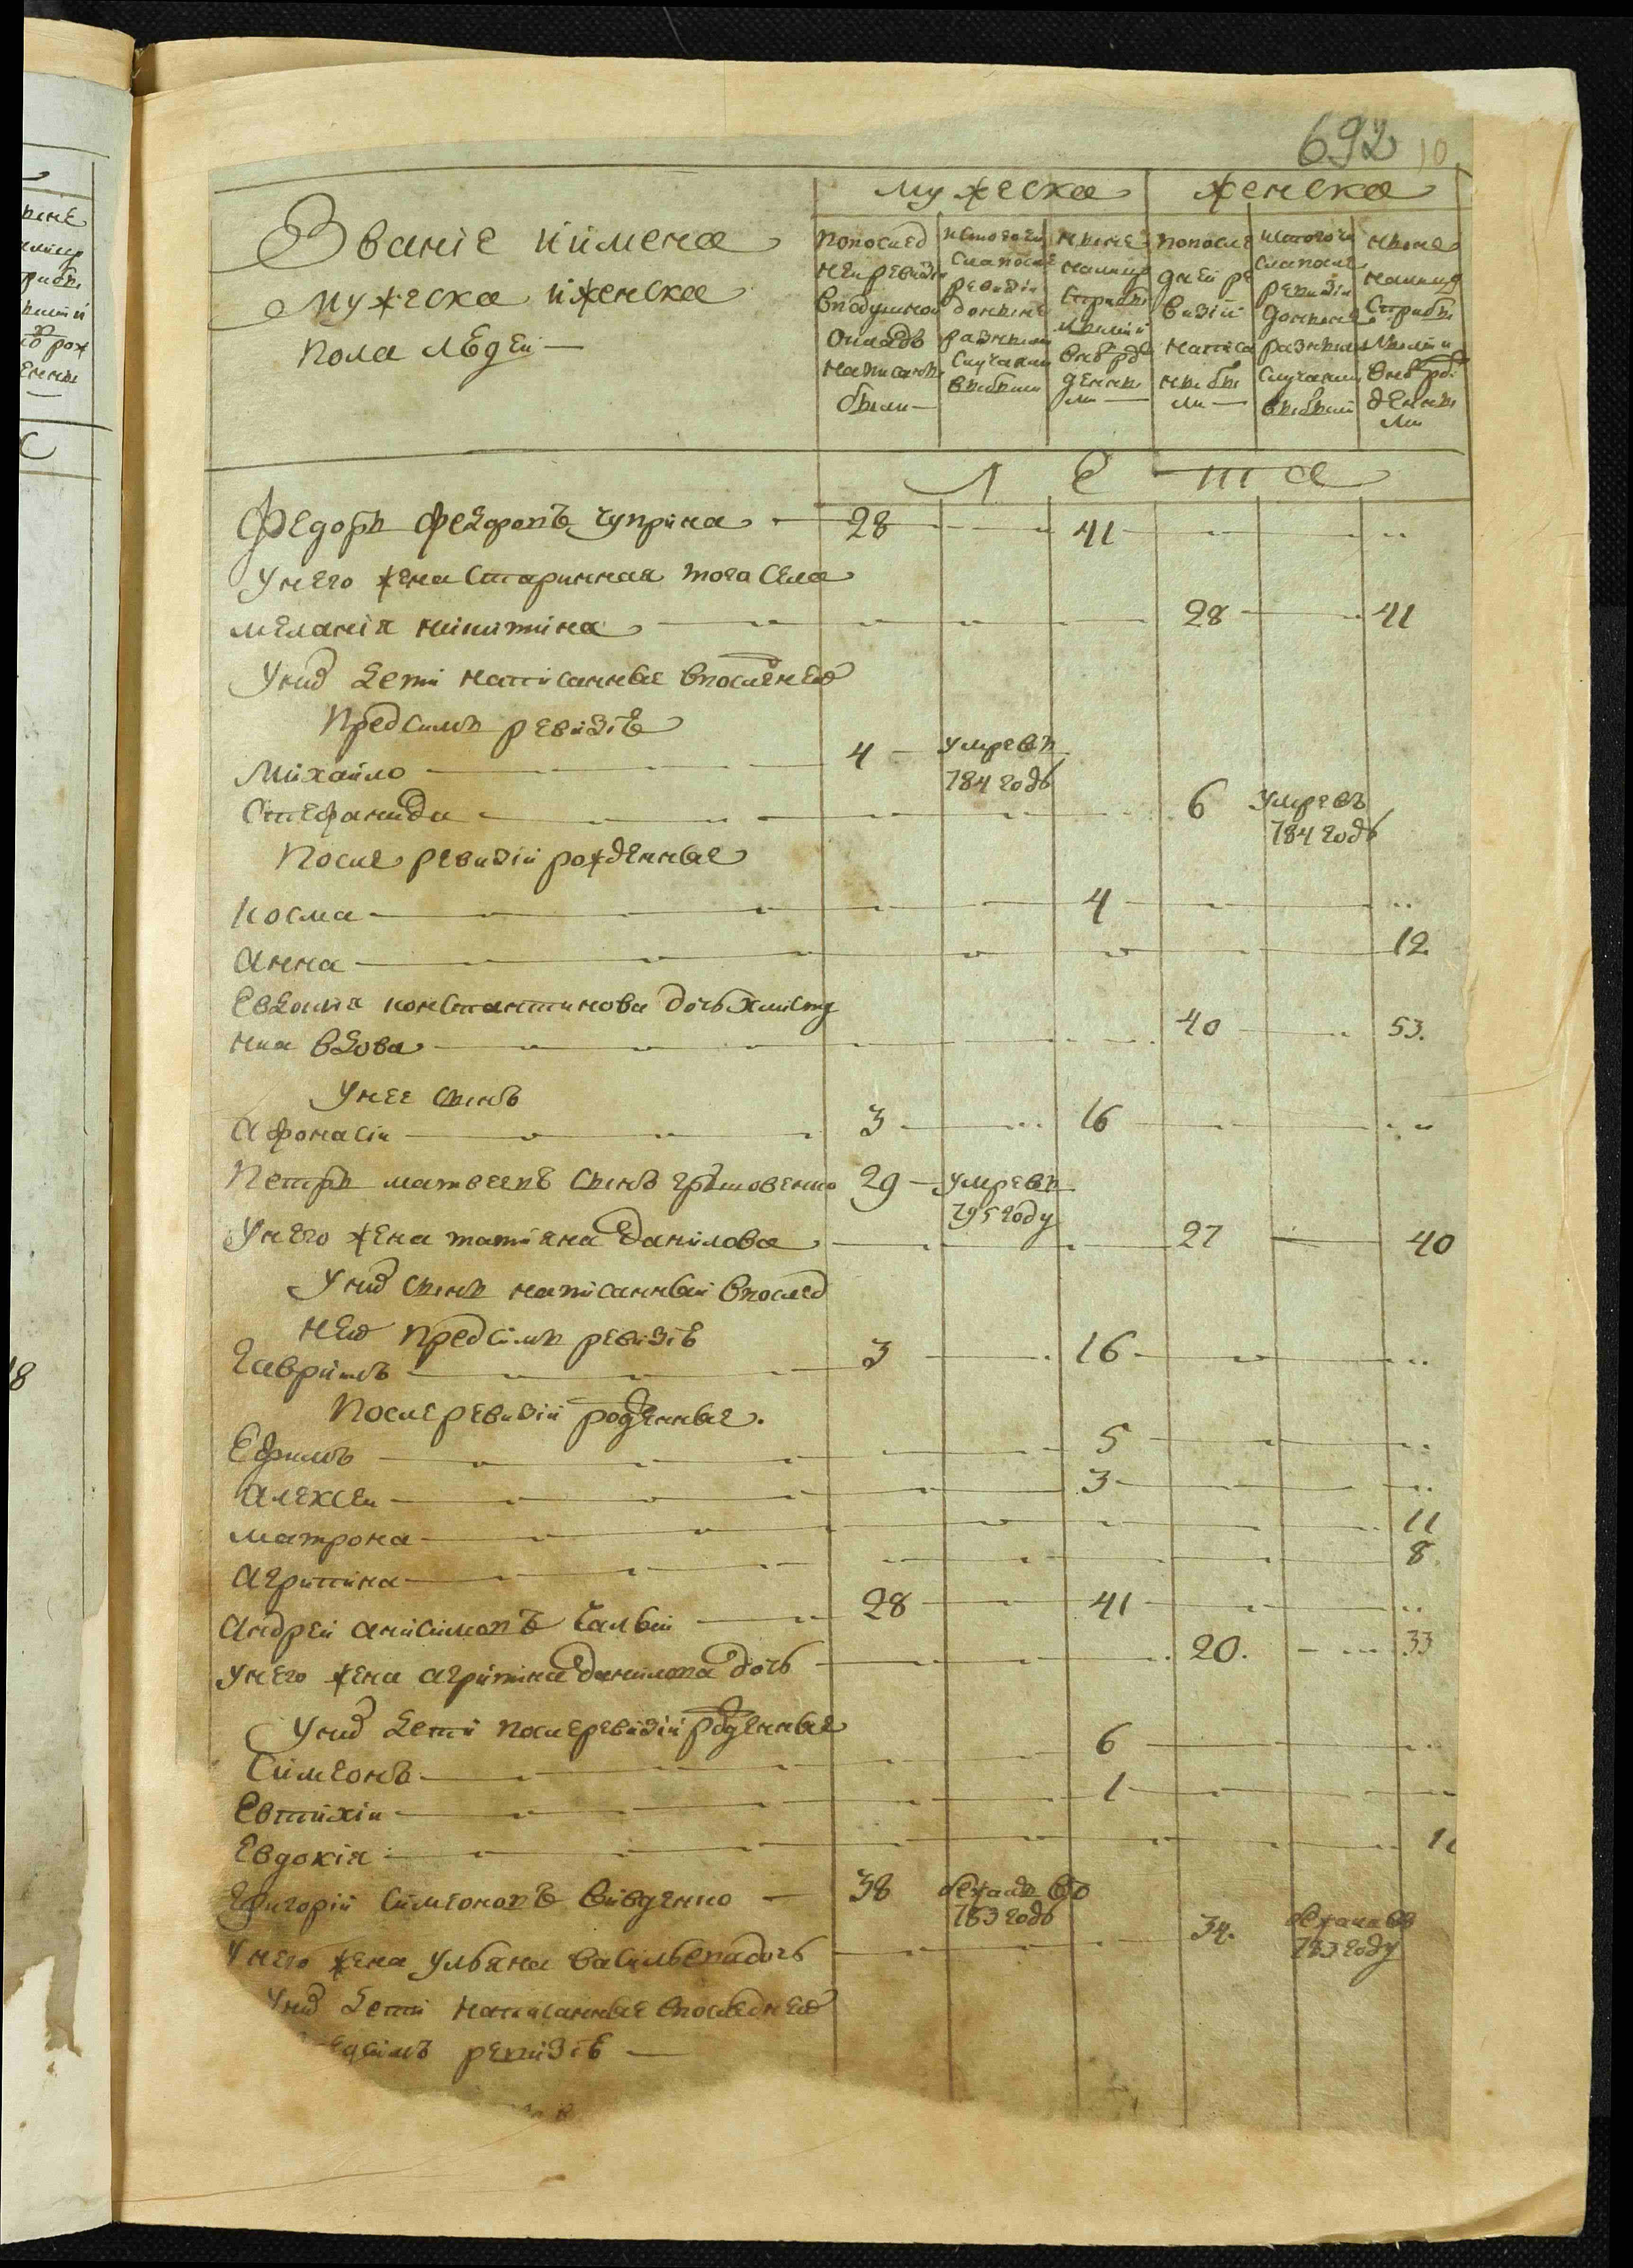 692 10
мужеска женска
Званіе иимена
мужеска иженска
пола людей
попослед
ней ревизіи
вподушном
окладѣ
написаны
были
изтогочи
слапосле
ревизіи
доныне
разными
случаями
выбыли
ныне
налицо
сприбы
лыми
вновь рож
денны
ми
попосле
дней ре
визіи
написа
ны бы
ли
изтогочи
слапосле
ревизіи
доныне
разными
случаями
выбыли
ныне
налицо
сприбы
лыми
вновь рож
денны
ми
Л е т а
Федоръ Федоровъ Чуприна 28 41
Унего жена старинная тогосела
меланія никитина 28 41
Уних дети написанные впоследней
предсимъ ревизіе
Михайло 4 умре въ
784 годѣ
Стефанида 6 умре въ
784 годѣ
После ревизіи рожденные
Косма 4
Анна 12
Евдокія константинова дочь
вдова 40 53.
Унее сынъ
Афонасіи 3 16
Петръ матвеевъ сынъ 29 умре въ
795 году
Унего жена татияна данилова 27 40
Уних сынъ написанный впослед
ней предсимъ ревизіе
Гаврилъ 3 16
После ревизіи рожденные.
Ефимъ 5
Алексеи 3
матрона 11
Агрипина 8.
Андреи анисимовъ 28 41
унего жена агрипина данилова дочь 20. 33
Уних дети после ревизіи рожденные
Симеонъ 6
Евтихіи 1
Евдокія
Григоріи Симеоновъ 38 бежалъ въ
783 годѣ
Унего жена Ульяна васильева дочь 34. бежала въ
783 году
Уних дети написанные впоследней
предсимъ ревизіе